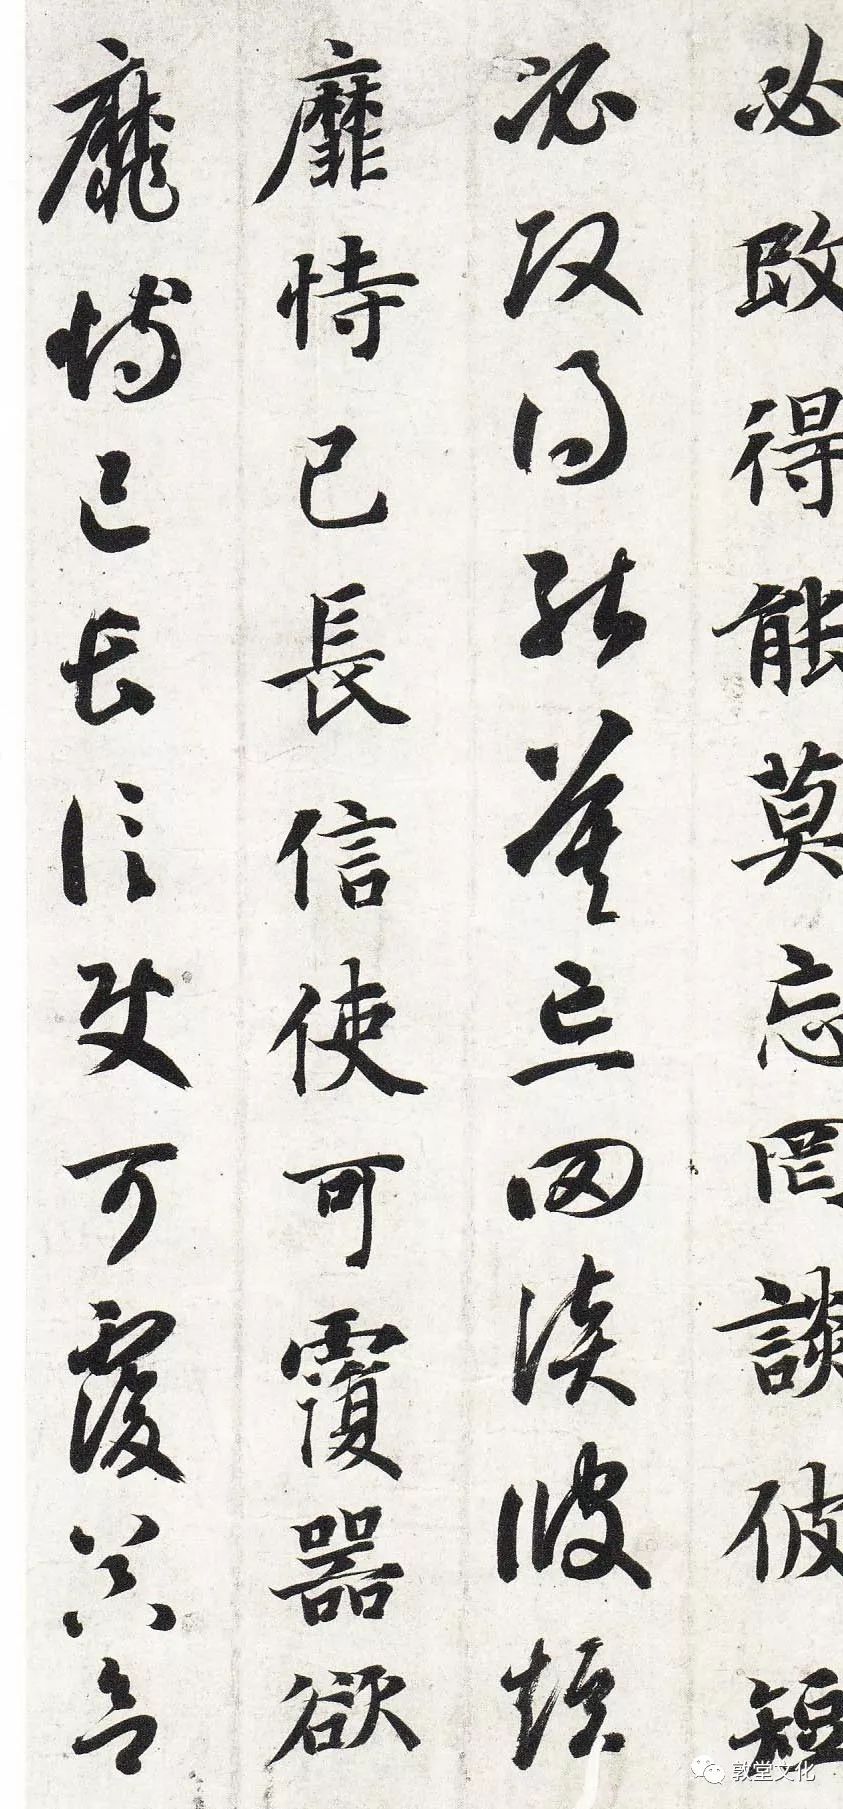 必改得能莫忘罔談彼短
必改得能莫忘罔談彼短
靡恃己長信使可覆器欲
靡恃己長信使可覆器欲
敦堂文化